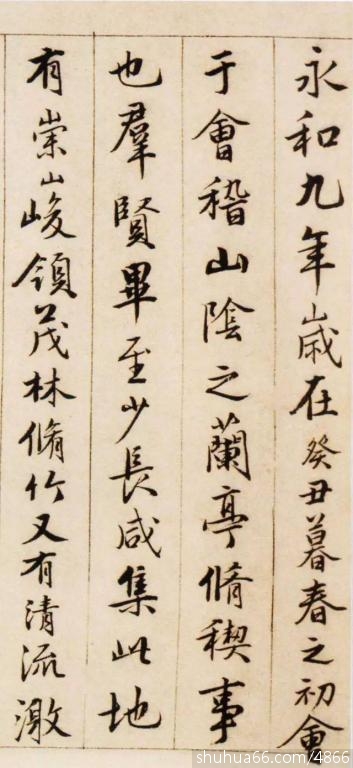 永和九年歲在癸丑暮春之初會
于會稽山陰之蘭亭脩稧事
也羣賢畢至少長咸集此地
有崇山峻領茂林脩竹又有清流激
shuhua66.com/4866